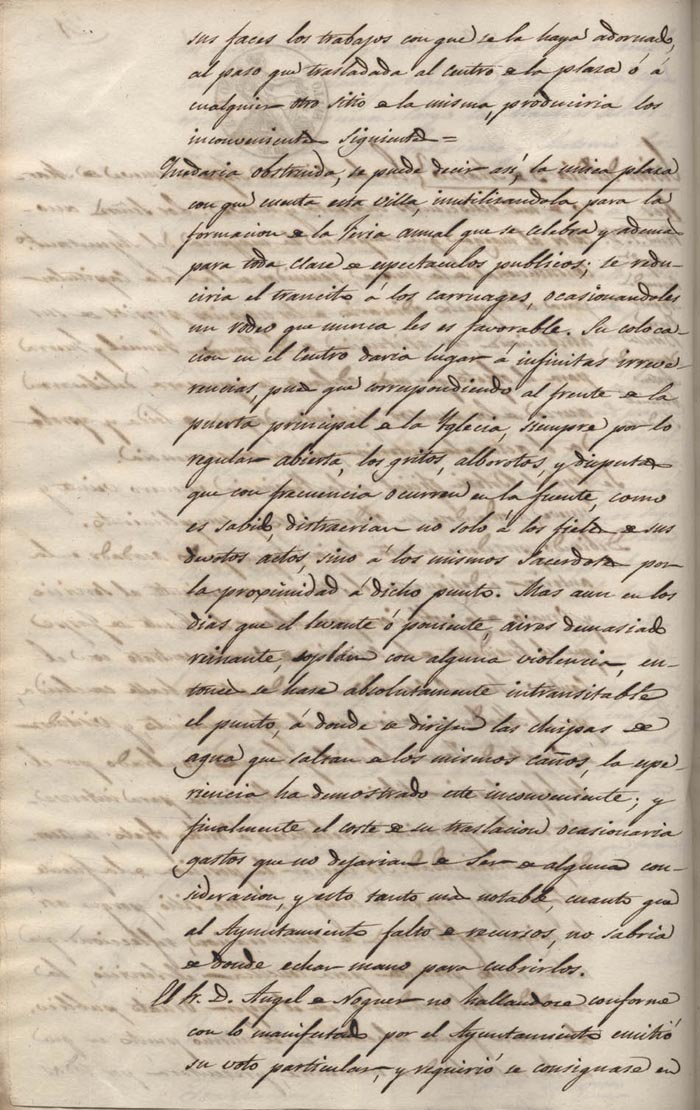 sus faces los trabajos con que se la haya adornado,
al paso que trasladada al centro de la plaza ó á
cualquier otro sitio de la misma, produciria los
inconvenientes siguientes =
Quedaria obstruida, se puede decir así, la unica plaza
con que cuenta esta villa, inutilizandola para la
formacion de la feria anual que se celebra y ademas
para toda clase de espectaculos publicos; se redu-
ciria el transito á los carruages, ocasionandoles
un rodeo que nunca les es favorable. Su coloca-
cion en el Centro daria lugar á infinitas irreve-
rencias, pues que correspondiendo al frente de la
puerta principal de la Yglecia, siempre por lo
regular abierta, los gritos, alborotos, y disputas
que con frecuencia ocurren en la fuente, como
es sabido, distraerian no solo á los fieles de sus
devotos actos, sino á los mismos Sacerdotes por
la proximidad á dicho punto. Mas aun en los
dias que el levante ó poniente, aires demasiado
reinantes, soplan con alguna violencia, en-
tonces se hase absolutamente intransitable
el punto, á donde se dirijen las chispas de
agua que saltan de los mismos caños, la espe-
riencia ha demostrado este inconveniente; y
finalmente el coste de su traslacion ocasionaria
gastos que no dejarian de ser de alguna con-
sideracion, y esto tanto mas notable, cuanto que
el Ayuntamiento falto de recursos, no sabria
de donde echar mano para cubrirlos.
El Sr. D. Angel de Noguer no hallandose conforme
con lo manifestado por el Ayuntamiento emitió
su voto particular, y requirió se consignase en